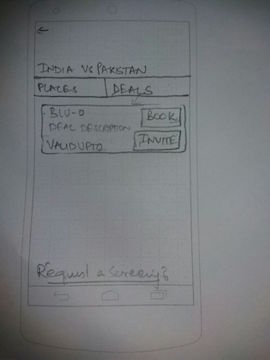 INDIA VS PAKSTAN
PLACES DEALS
BLU-O BOOK
DEAL DESCRIPTION
VALIDUPTO INVITE
Request a Screening?